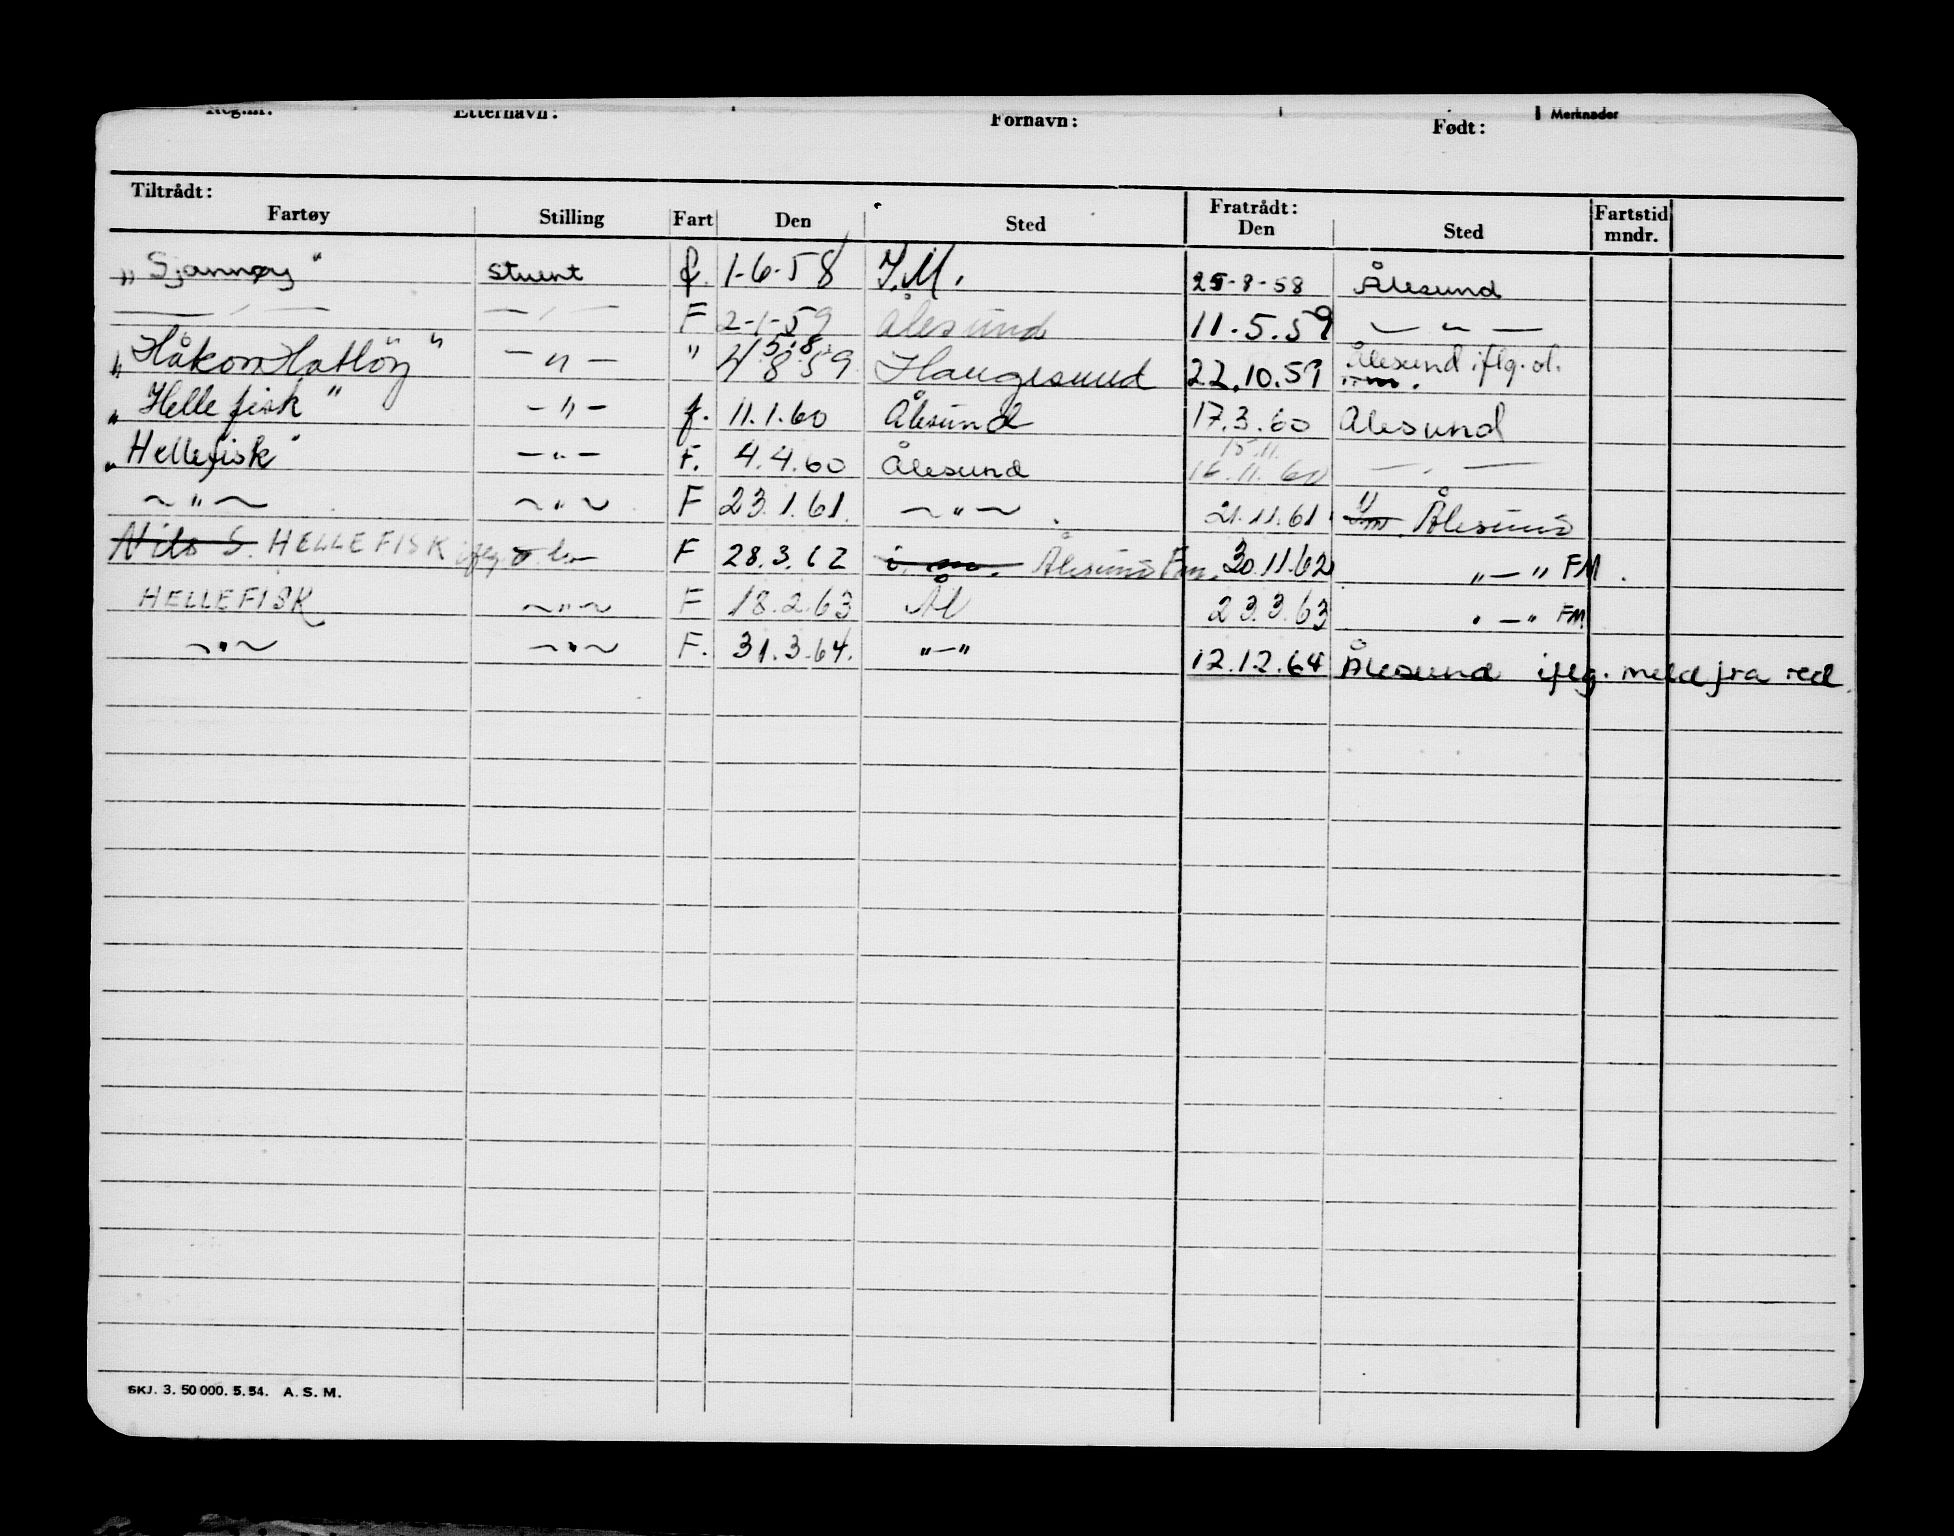 Reg.nr. Etternavn: Fornavn: Født: Merknader
Tiltrådt: Fratrådt:
Fartøy Stilling Fart Den Sted Den Sted Fartstid mndr.
„Sjannøy" stuert f. 1-6-58 I.M. 25-8-58 Ålesund
— " — — " — F 2-1-59 Ålesund 11.5.59 — " —
5.8.
„Håkon Hatløy" — " — " 4 8 59 Haugesund 22.10.59 Ålesund iflg. ol.
„Hellefisk" — " — f. 11.1.60 Ålesund 17.3.60 Ålesund
15.11.
„Hellefisk" — " — F. 4.4.60 Ålesund 16.11.60 — " —
— " — — " — F 23.1.61. — " — . 21.11.61. Ålesund
Nils S. HELLEFISK iflg F 28.3.62 i. m. Ålesund Fm. 30.11.62 "—" FM.
HELLEFISK — " — F 18.2.63 Ål 23.3.63 "—" FM.
— " — — " — F. 31.3.64. "—" 12.12.64 Ålesund iflg. meld fra red.
SKJ. 3. 50 000. 5. 54. A. S. M.